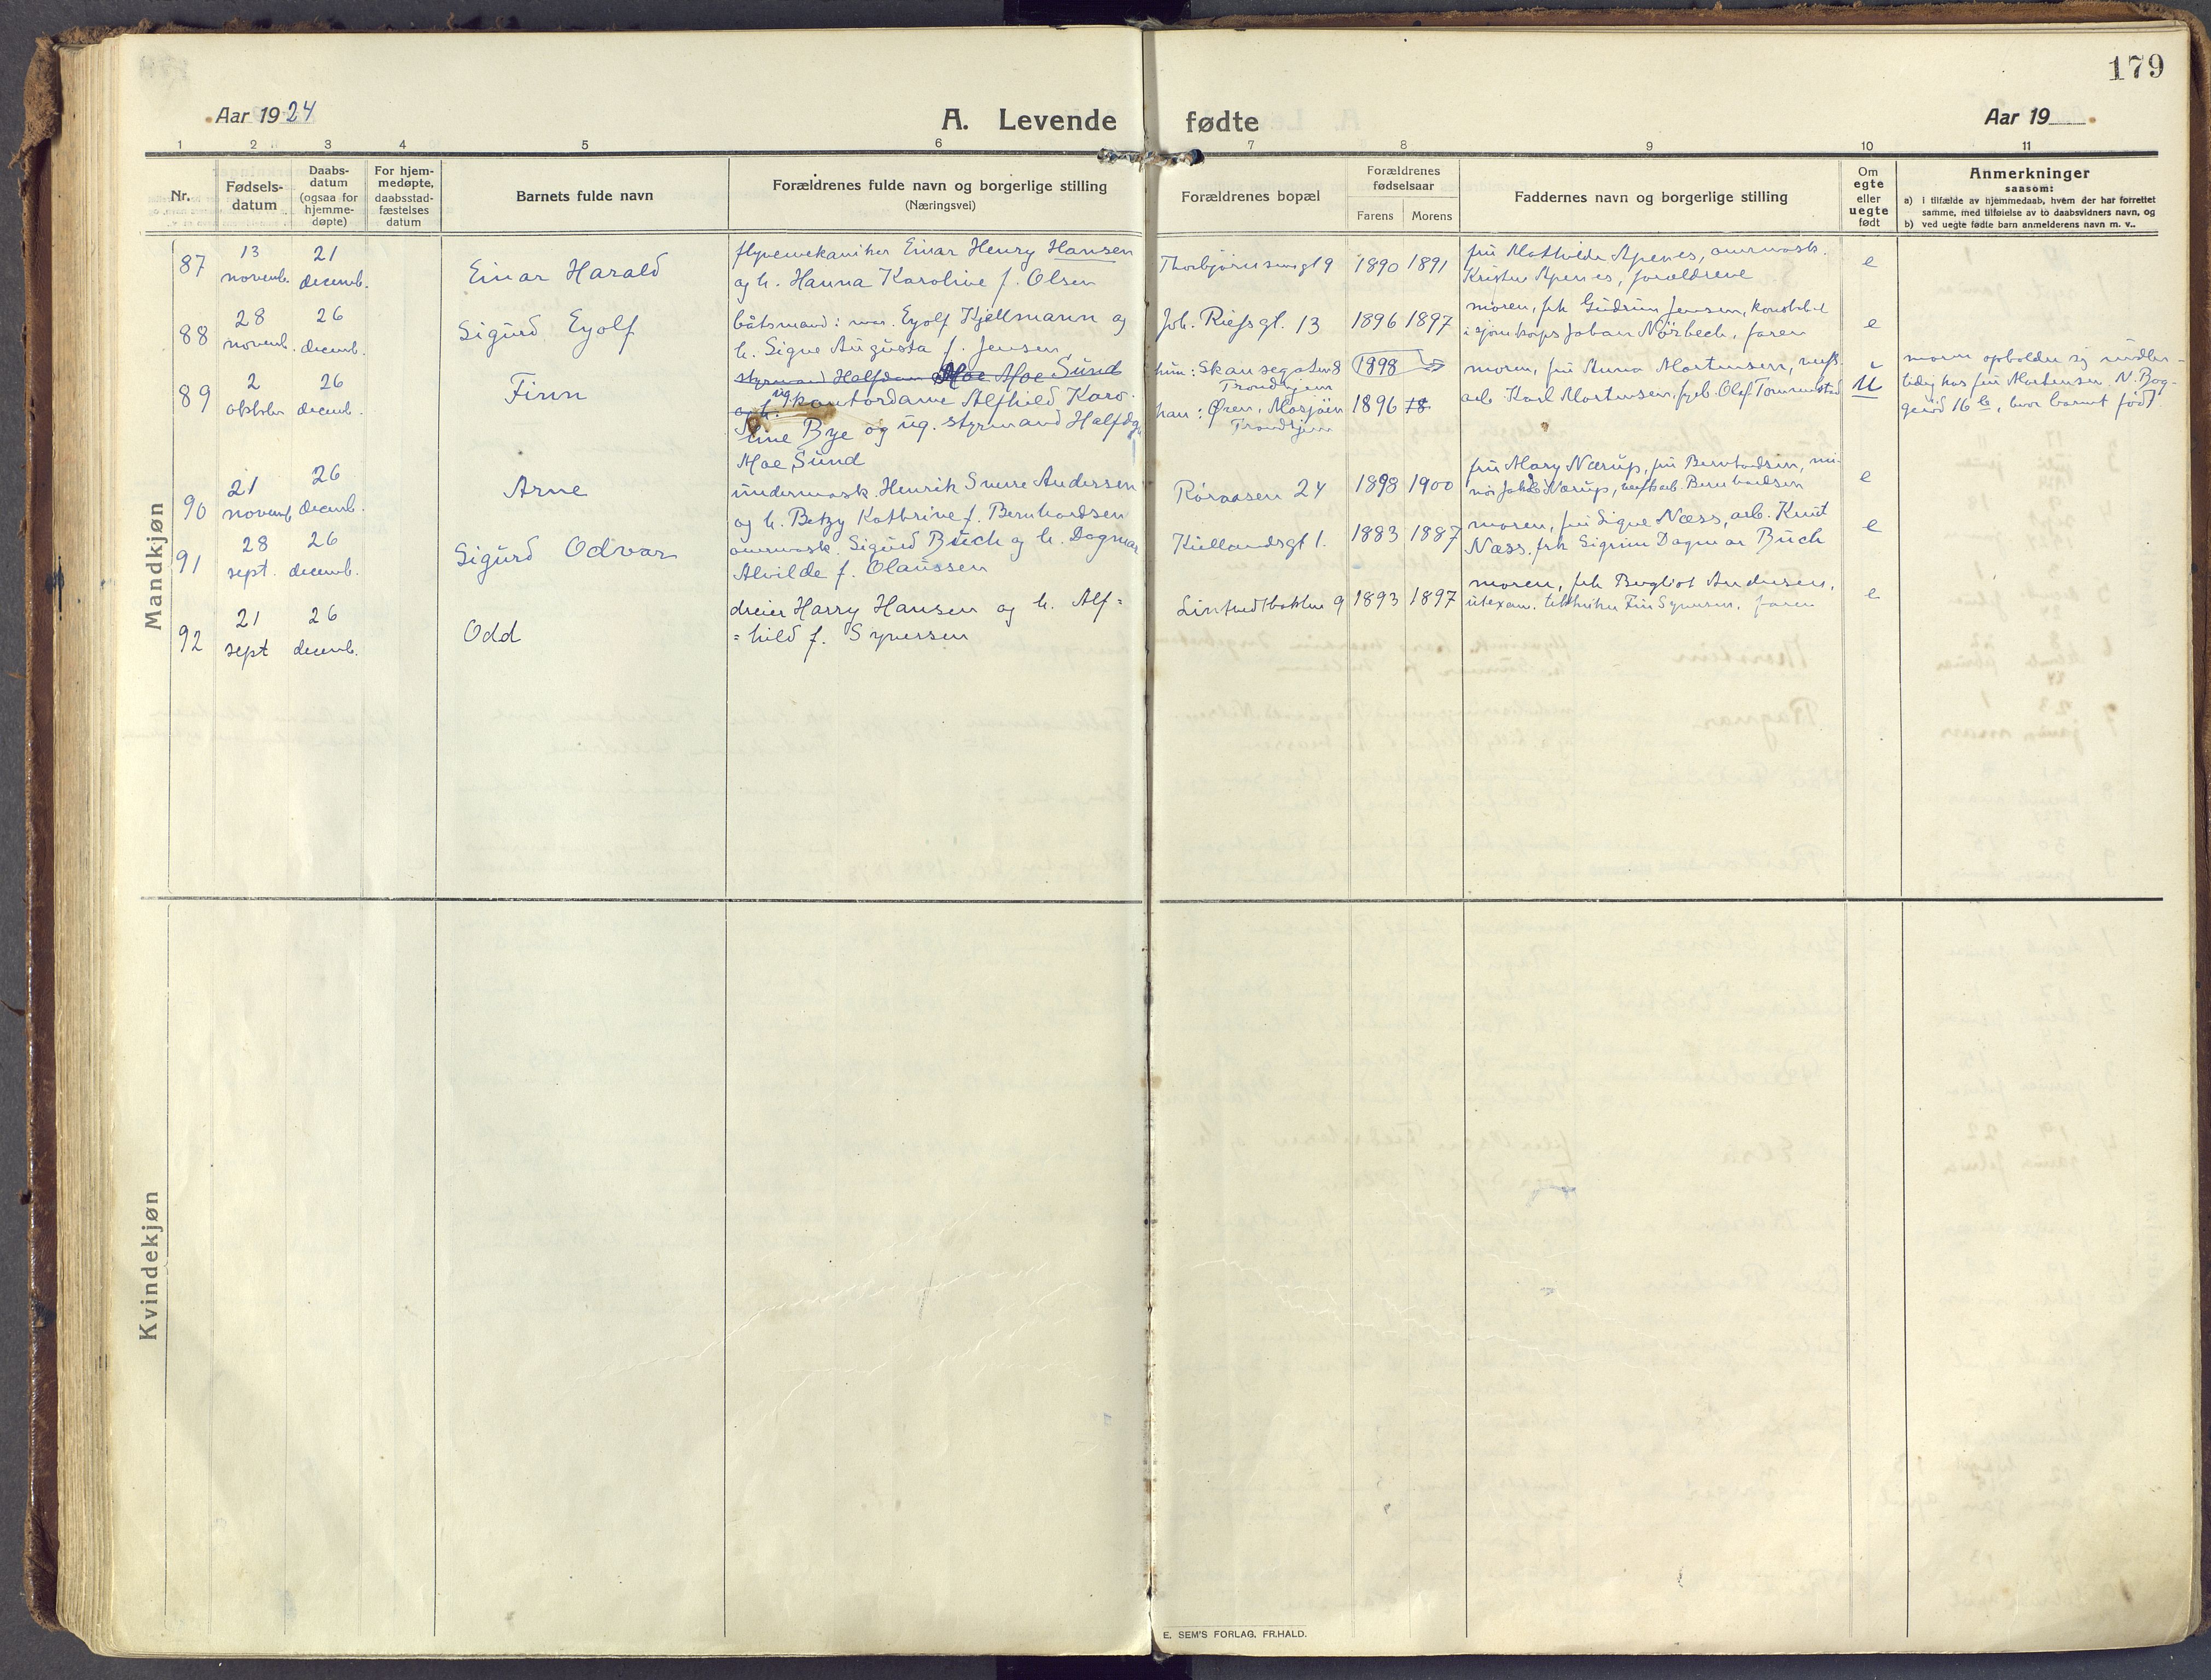 179
Aar 1924
A. Levende fødte
Aar 19
1 2 3 4 5 6 7 8 9 10 11
Nr.
Fødsels-
datum
Daabs-
datum
(ogsaa for
hjemme-
døpte)
For hjem-
medøpte,
daabsstad-
fæstelses
datum
Barnets fulde navn
Forældrenes fulde navn og borgerlige stilling
(Næringsvei)
Forældrenes bopæl
Forældrenes
fødselsaar
Farens Morens
Faddernes navn og borgerlige stilling
Om
egte
eller
uegte
født
Anmerkninger
saasom:
a) i tilfælde av hjemmedaab, hvem der har forrettet
samme, med tilføielse av to daabsvidners navn, og
b) ved uegte fødte barn anmelderens navn m. v..
Mandkjøn
87
13
novemb.
21
decemb.
Einar Harald
flyvemekaniker Einar Henry Hansen
og h. Hanna Karoline f. Olsen
Thorbjørnsensgt 9
1890 1891
fru Mathilde Apenes,
Kristen Apenes, forældrene
e
88
28
novemb.
26
decemb.
Sigurd Eyolf
båtsmand i mar. Eyolf Kjellmann og
h. Signe Augusta f. Jensen
Joh. Riefsgt. 13
1896 1897
moren, frk Gudrun Jensen,
Johan Nørbech, faren
e
89
2
oktober
26
decemb.
Finn
styrmand Halfdan Moe Moe Sund
og h. ug. kontordame Alfhild Karo-
line Bye og ug. styrmand Halfdan
Moe Sund
hun: Skansegaten 8
Trondhjem
han: Øren, Mosjøen
Trondhjem
1898
1896 18
moren, fru Anna Mortensen,
arb. Karl Mortensen, Olaf
u
moren opholder sig midler-
tidig hos fru Mortensen N. Bog-
gerød 16 b, hvor barnet født
90
21
novemb.
26
decemb.
Arne
undermask. Henrik Sverre Andersen
og h. Betzy Kathrine f. Bernhardsen
Råraasen 24
1898 1900
fru Mary Nærup, fru Bernhardsen, mi-
nør Jakob Nærup, Bernhardsen
e
91
28
sept.
26
decemb.
Sigurd Odvar
Sigurd Buch og h. Dagmar
Alvilde f. Olaussen
Kullandsgt 1.
1883 1887
moren, fru Signe Næss, arb. Knut
Næss, frk Sigrun Dagmar Buch
e
92
21
sept
26
decemb.
Odd
dreier Harry Hansen og h. Alf=
=hild f. Syversen
9
1893 1897
moren, frk Bergliot Andersen,
utexam. Finn Syversen, faren
e
Kvindekjøn
E. SEM'S FORLAG, FR.HALD.